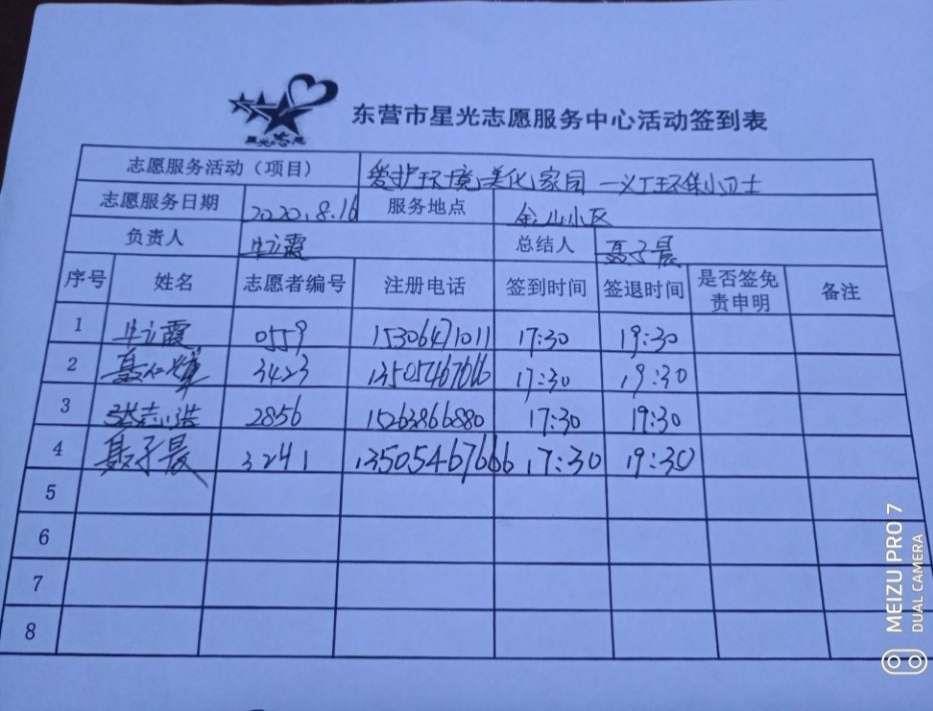 星光志愿
东营市星光志愿服务中心活动签到表
志愿服务活动（项目） 爱护环境 美化家园 一义工环保小卫士
志愿服务日期 2020.8.16 服务地点 金山小区
负责人 牛立霞 总结人 聂子晨
序号 姓名 志愿者编号 注册电话 签到时间 签退时间 是否签免责申明 备注
1 牛立霞 0559 15306471011 17:30 19:30
2 聂 3423 13505467666 17:30 19:30
3 张志浩 2856 15263866880 17:30 19:30
4 聂子晨 3241 13505467666 17:30 19:30
5
6
7
8
MEIZU PRO 7
DUAL CAMERA